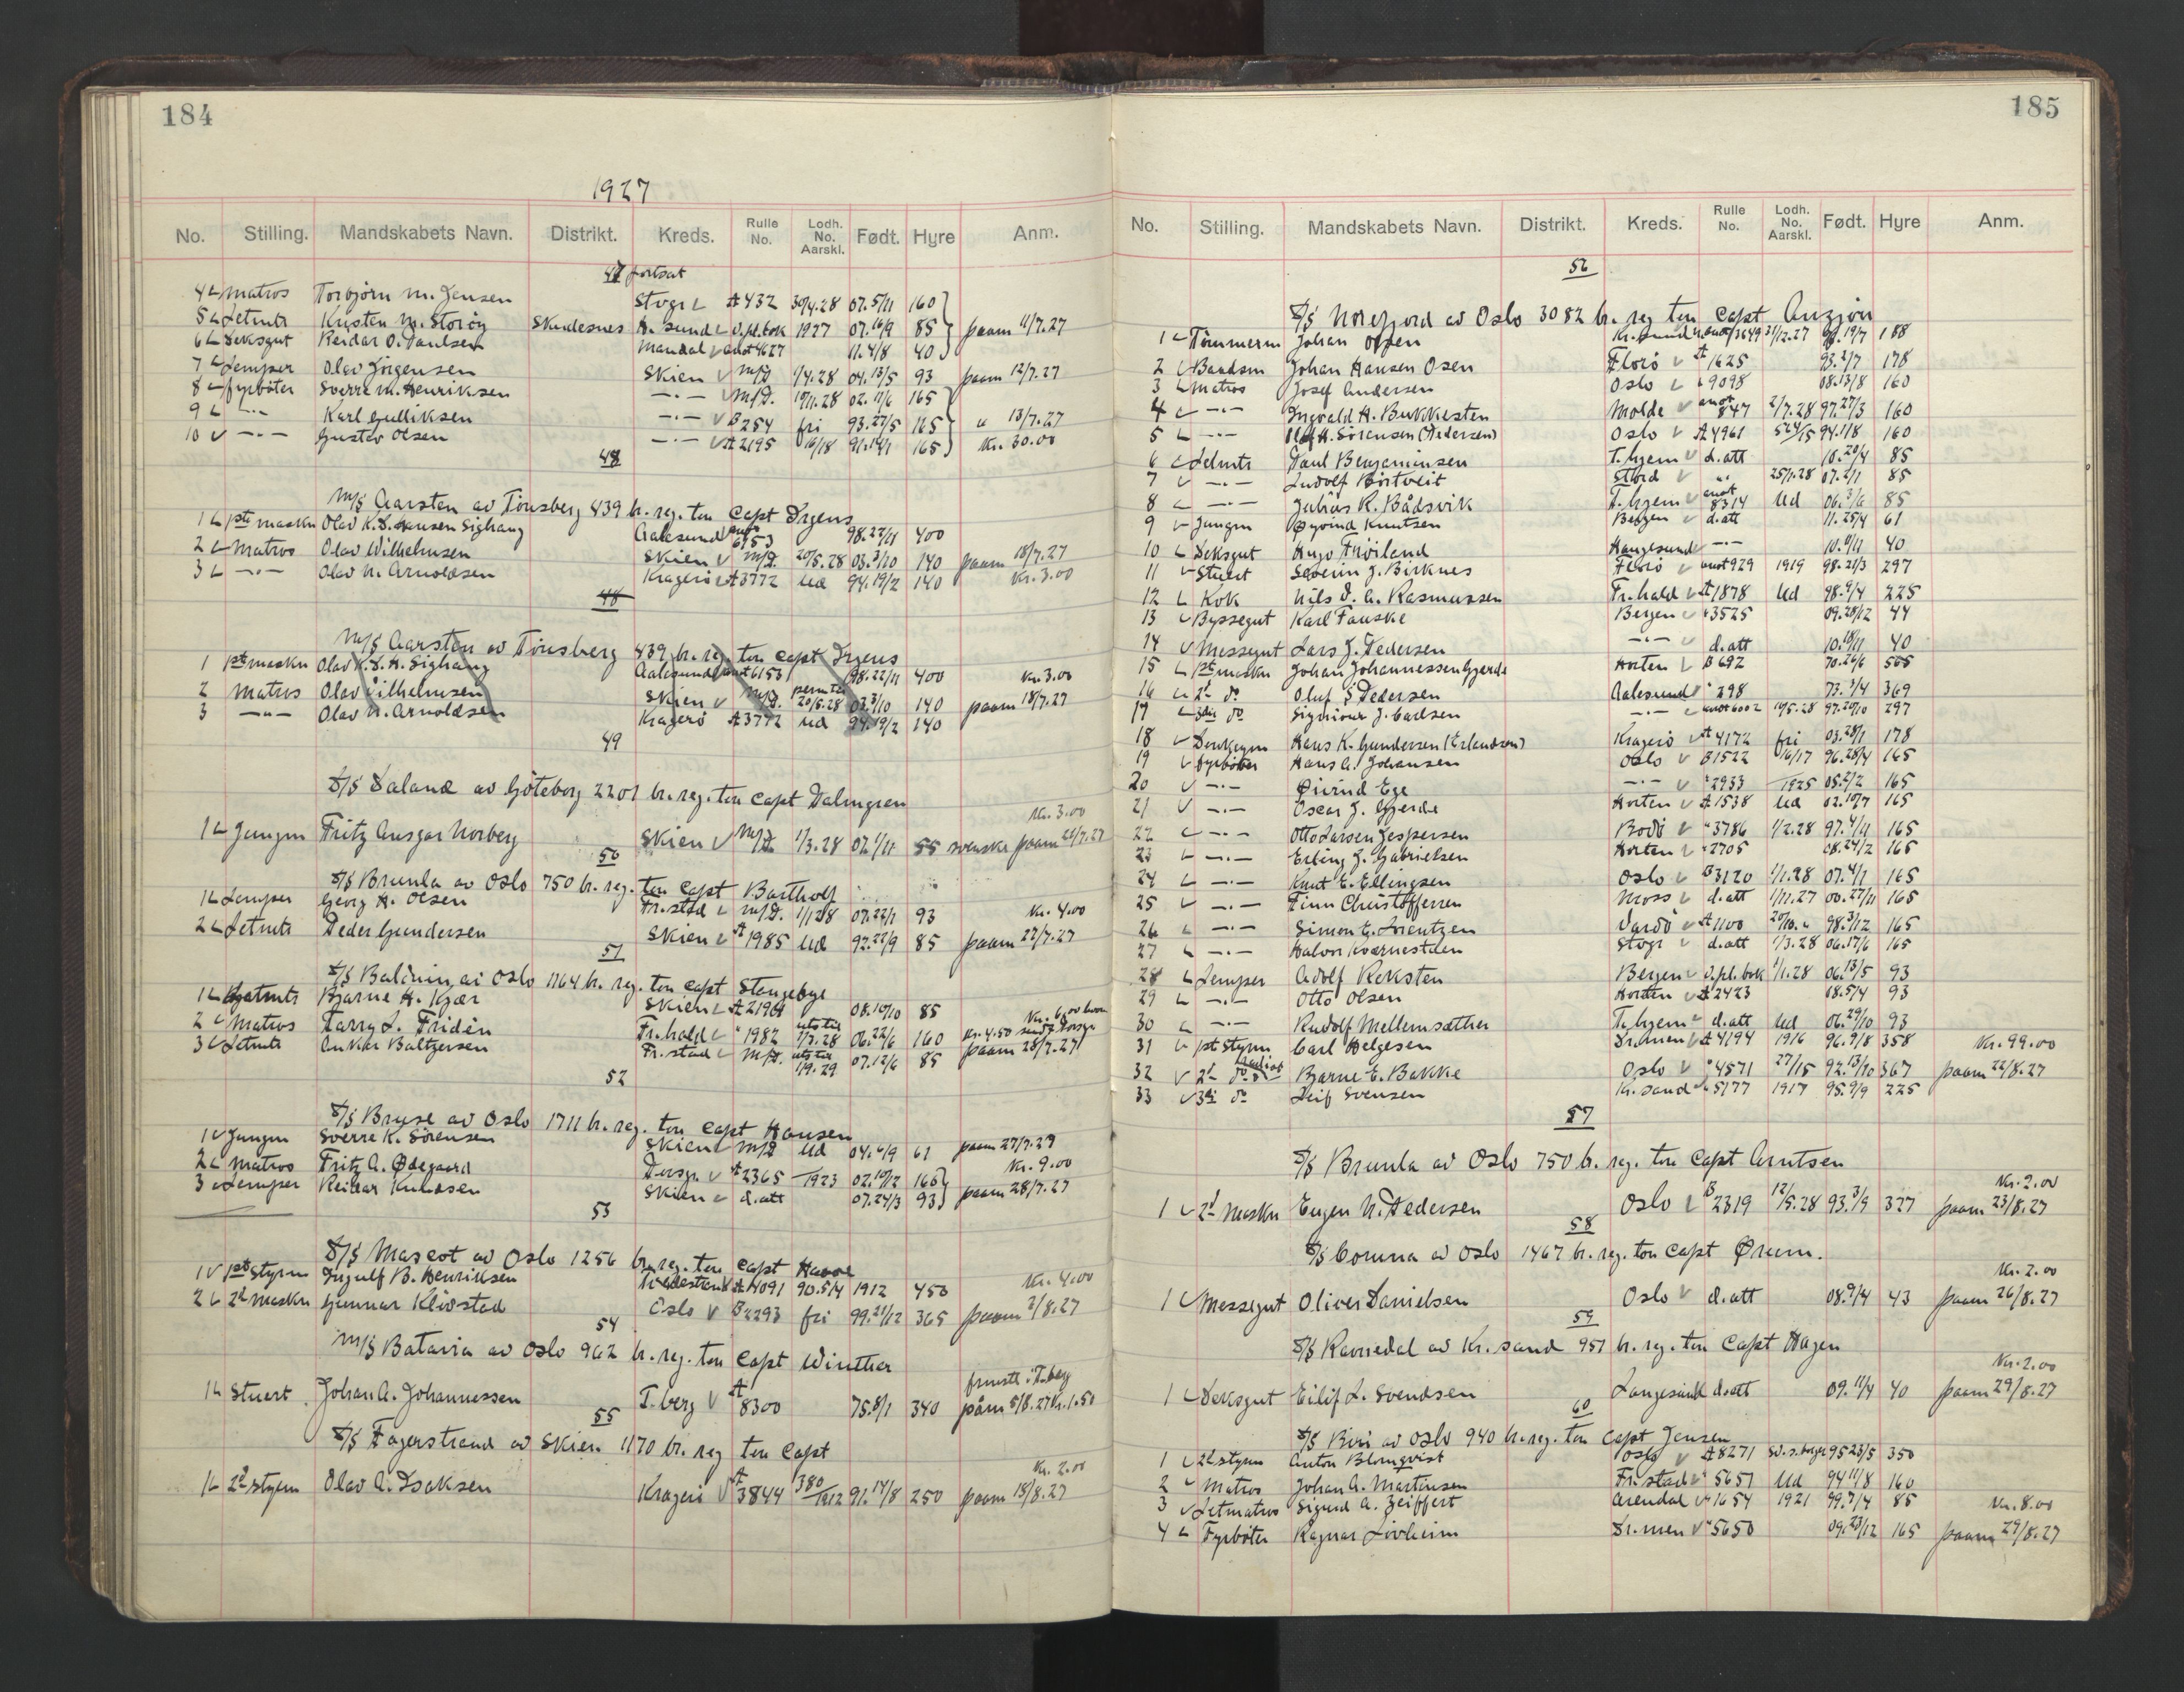 184
1927
No. Stilling. Mandskabets Navn. Distrikt. Kreds. Rulle No. Lodh. No. Aarskl. Født. Hyre Anm.
47 fortsat
4 Matros Torbjörn M. Jensen Stvgr A 432 30/4.28 07.5/11 160
5 Letmtr Kristen M. Storöy Skudesnes H.sund d.pl.bok 1927 07.16/9 85 paam 11/7.27
6 Deksgut Reidar O. Paulsen Mandal anot 4627 11.4/8 40
7 Lemper Olav Jörgensen Skien m/D 1/4.28 04.13/5 93 paam 12/7.27
8 fyrböter Sverre M. Henriksen —"— m/D. 19/11.28 02.11/6 165
9 —"— Karl Gulliksen —"— B 254 fri 93.27/5 165 " 13/7.27
10 —"— Gustav Olsen —"— A 2195 16/18 91.14/1 165 Kr. 30.00
48
M/S Aarsten av Tönsberg 439 br. reg. ton Capt Irgens
1 1ste maskn Olav K.S. Hansen Sighaug Aalesund anot 6153 98.22/11 400
2 Matros Olav Wilhelmsen Skien m/D. 20/5.28 03.3/10 140 paam 18/7.27
3 —"— Olav N. Arnoldsen Kragerö A 3772 Ud 94.19/2 140 Kr. 3.00
48
M/S Aarsten av Tönsberg 439 br. reg. ton Capt Irgens
1 1st maskn Olav K.S. H. Sighaug Aalesund anot 6153 98.22/11 400 Kr. 3.00
2 Matros Olav Wilhelmsen Skien m/D. 20/5.28 03.3/10 140 paam 18/7.27
3 —"— Olav N. Arnoldsen Kragerö A 3772 Ud 94.19/2 140
49
S/S Daland av Göteborg 2201 br. reg. ton Capt Palmgren
Kr. 3.00
1 Jungm Fritz Ansgar Norberg Skien m/D 1/3.28 07.1/11 55 svenske paam 21/7.27
50
S/S Brunla av Oslo 750 br. reg. ton Capt Bartholf
1 Lemper Georg H. Olsen Fr.stad m/D. 1/1 28 07.22/1 93 Kr. 4.00
2 Letmtr Peder Gundersen Skien A 1985 Ud 92.22/9 85 paam 22/7.27
51
S/S Balduin av Oslo 1164 br. reg. ton Capt Stangebye
1 Letmtr Bjarne H. Kjær Skien A 2196 08.10/10 85
2 Matros Harry L. Fridén Fr.hald " 1982 utsat til 1/7.28 06.22/6 160 Kr. 4.50
3 Letmtr Baltzersen Fr.stad m/D. utsat til 1/9.29 07.12/6 85 paam 28/7.27
52
S/S Bruse av Oslo 1711 br. reg. ton Capt Hansen
1 Jungm Sverre K. Sörensen Skien m/D Ud 04.6/9 61 paam 27/7.27
2 Matros Fritz A. Ødegaard Porsgr. A 2365 1923 02.10/12 160 Kr. 9.00
3 Lemper Reidar Knudsen Skien d.att 07.24/3 93 paam 28/7.27
53
S/S Mascot av Oslo 1256 br. reg. ton Capt
1 1ste Styrm Ingulf B. Henriksen A 14091 90.5/4 1912 450 Kr. 4.00
2 2d maskn Gunnar Klövstad Oslo B 2293 fri 99.21/12 365 paam 2/8.27
54
M/S Batavia av Oslo 962 br. reg. ton Capt Winther
1 Stuert Johan A. Johannessen T.berg A 8300 75.8/1 340 paam 5/8.27 Kr. 1.50
55
S/S Fagerstrand av Skien 1170 br. reg ton Capt
Kr. 2.00
1 2d Styrm Olav A. Isaksen Kragerö A 3844 380/1912 91.14/8 250 paam 18/8.27
185
No. Stilling. Mandskabets Navn. Distrikt. Kreds. Rulle No. Lodh. No. Aarskl. Født. Hyre Anm.
56
S/S Norefjord av Oslo 3082 br. reg ton Capt Anzjön
1 Tömmerm Johan Olsen Kr.sund 31/12.27 188
2 Baadsm Johan Hansen Osen Florö A 1625 93.2/7 178
3 Matros Josef Andersen Oslo " 9098 08.13/8 160
4 —"— Ingvald H. Bukkesten Molde anot 847 2/7.28 97.27/3 160
5 —"— H. Sörensen (Pedersen) Oslo A 4961 524/15 94.1/8 160
6 Letmtr Paul Benjaminsen T.hjem d.att 10.20/4 85
7 —"— Ludolf Börtveit Stord " 25/1.28 07.2/1 85
8 —"— Julius R. Bådsvik T.hjem anot 8314 Ud 06.3/6 85
9 Jungm Øyvind Knutsen Bergen d.att 11.25/4 61
10 Deksgut Hugo Fröiland Haugesund —"— 10.11/11 40
11 Stuert Severin J. Birknes Florö anot 929 1919 98.21/3 297
12 Kok Nils D. A. Rasmussen Fr.hald A 1878 Ud 98.9/4 225
13 Byssegut Karl Fauske Bergen " 3525 09.28/12 44
14 Messegut Lars J. Pedersen —"— d.att 10.18/11 40
15 1ste maskn Johan Johannessen Gjerde Horten B 692 70.26/6 505
16 2d do Oluf S. Pedersen Aalesund " 298 73.3/4 369
17 3die do Sigmund J. Carlsen —"— anot 6002 10/5.28 97.20/10 297
18 Donkeym Hans K. Gundersen (Erlandsen) Kragerö A 4172 fri 03.28/1 178
19 fyrböter Hans A. Johansen Oslo B 1522 16/17 96.28/4 165
20 —"— Öivind Ege —"— " 2933 1925 05.2/2 165
21 —"— Oscar J. Gjerde Horten A 1538 Ud 02.10/7 165
22 —"— Otto Larsen Jespersen Bodö " 3786 1/2.28 97.4/11 165
23 —"— Erling J. Gabrielsen Horten " 2705 08.24/2 165
24 —"— Knut E. Ellingsen Oslo B 3120 1/1.28 07.4/1 165
25 —"— Finn Christoffersen Moss d.att 1/11.27 00.27/11 165
26 —"— Simon E. Lorentzen Vardö A 1100 20/10." 98.3/12 165
27 —"— Halvor Kvarnestalen Stvgr d.att 1/3.28 06.17/6 165
28 Lemper Adolf Reksten Bergen d.pl.bok 1/1.28 06.13/5 93
29 —"— Otto Olsen Horten A 2423 08.5/4 93
30 —"— Rudolf Mellemsæther T.hjem d.att Ud 06.29/10 93
31 1st Styrm Carl Helgesen Dr.men A 4194 1916 96.9/8 358 Kr. 99.00
32 2d do Bjarne E. Bakke Oslo " 4571 27/15 92.13/10 367 paam 22/8.27
33 3di do Leif Svensen Kr.sand " 5177 1917 95.9/9 225
57
S/S Brunla av Oslo 750 br. reg. ton Capt Arntsen
Kr. 2.00
1 2d Maskn Eugen N. Pedersen Oslo B 2319 12/5.28 93.3/9 327 paam 23/8.27
58
S/S Corona av Oslo 1467 br. reg. ton Capt Ørum.
Kr. 2.00
1 Messegut Oliver Danielsen Oslo d.att 08.9/4 43 paam 26/8.27
59
S/S Ravnedal av Kr.sand 951 br. reg. ton Capt Hagen
Kr. 2.00
1 Deksgut Eilif L. Svendsen Langesund d.att 09.11/4 40 paam 29/8.27
60
S/S Biri av Oslo 940 br. reg. ton Capt Jensen
1 2d Styrm Anton Blomqvist Oslo A 8271 sv.s.borger 95 23/5 350
2 Matros Johan A. Martinsen Fr.stad " 5651 Ud 94 11/8 160
3 Letmatros Sigurd A. Zeiffert Arendal " 1654 1921 99.9/4 85 Kr. 8.00
4 Fyrböter Ragnar Livheim Dr.men " 5650 09.23/12 165 paam 29/8.27